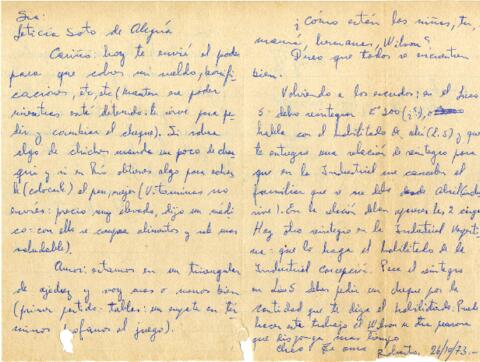 Sra:
Leticia Soto de Alegría
Cariño: hoy te envié el poder
para que cobres mi sueldo, bonifi
caciones, etc, etc (manten ese poder
mientras esté detenido: te sirve para pe
dir y cambiar el cheque). Si sobra
algo de chichos manda un poco de cha
qui y si en Pis obtienes algo para echar
le (colocarle) al pan, mejor (Vitaminas no
envíes: precio muy elevado, dijo un médi
co: con ello se compra alimentos y es más
saludable)
Amor: estamos en un triangular
de ajedrez y voy más o menos bien
(primer partido: tablas: un empate en tér
minos profanos al juego).
¿Cómo están las niñas, tu,
mamá, hermanas, Wilson?
Deseo que todos se encuentren
bien.
Volviendo a los escudos: en el Liceo
5 debo reintegrar Eº 200 (¿?),
habla con el habilitado de ahí (L.5) y que
te entregue una relación de reintegro para
que en la Industrial me cancelen el
familiar que se me debe desde abril (Andres
vive). En la relación deben aparecer los 2 cargos
Hay otro reintegro en la Industrial
que lo haga el habilitado de la
Industrial Concepción. Para el reintegro
en Liceo 5 debes pedir un cheque por la
cantidad que te diga el habilitado. Puede
hacer este trabajo el Wilson u otra persona
que disponga más tiempo
Chao! Te ama Roberto. 26/10/73.-